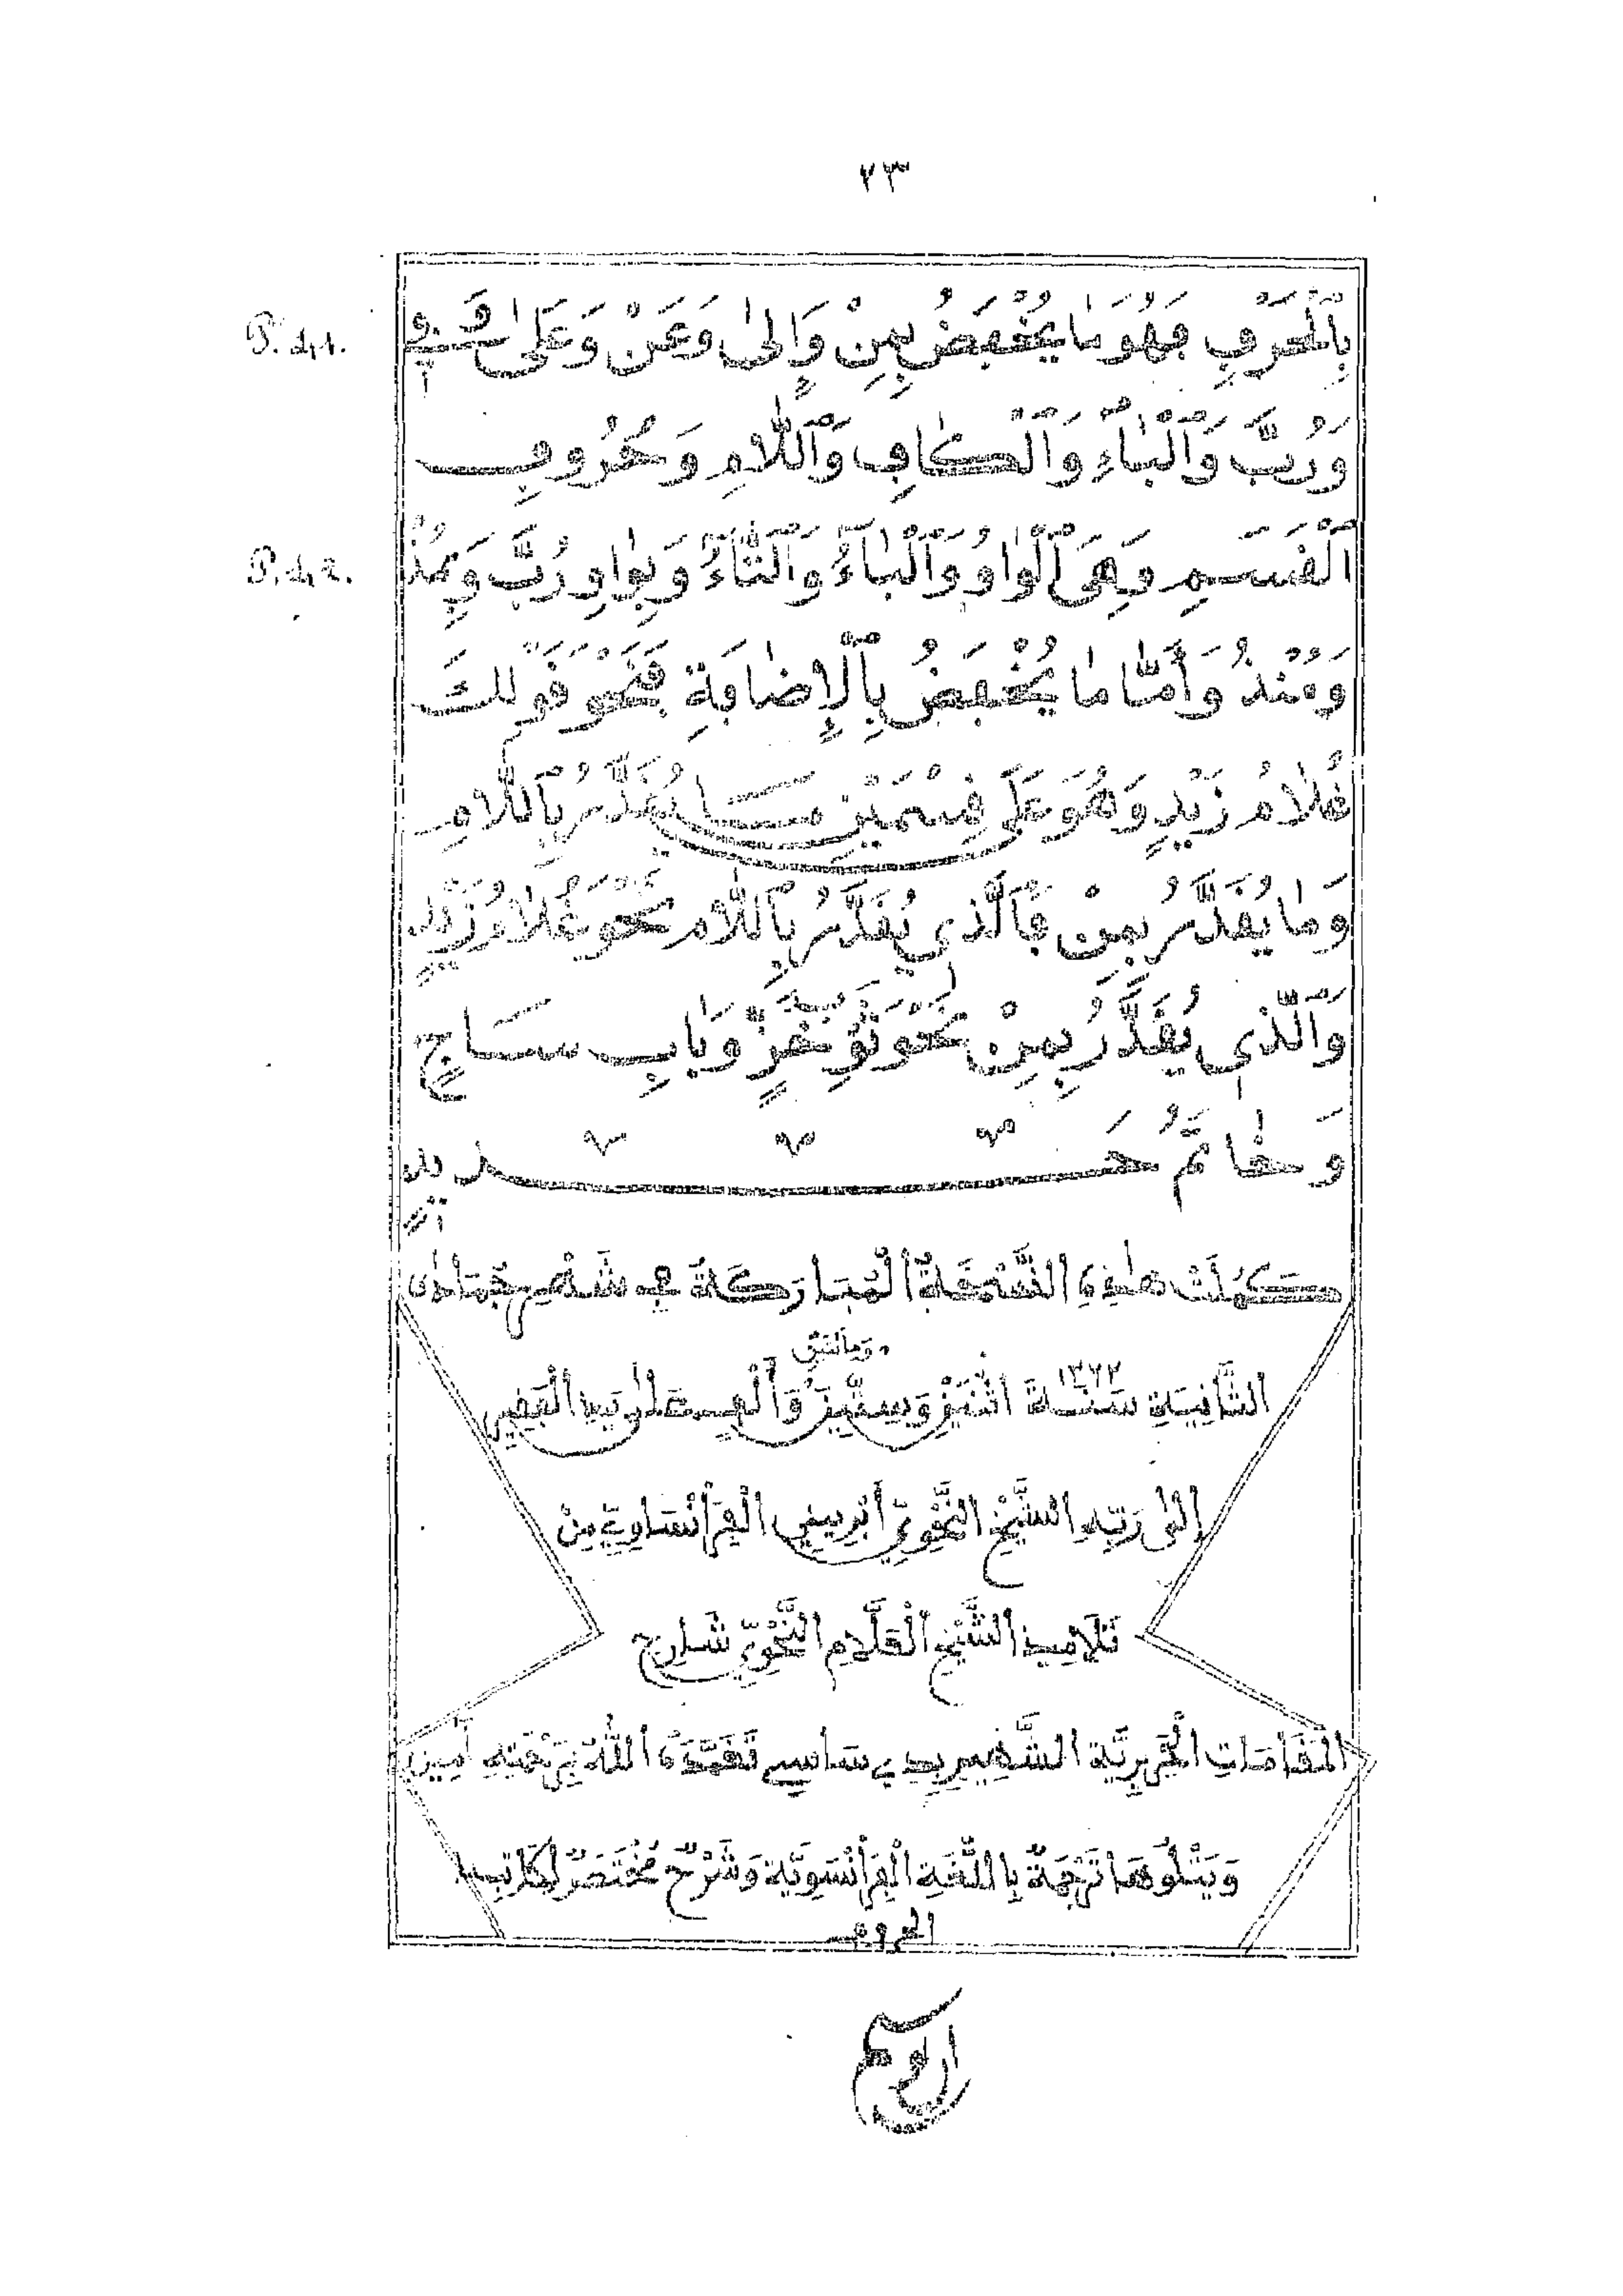 ٢٣
P. 41.
بِالْحَرْفِ فَهُوَ مَا يُخْفَضُ بِمِنْ وَإِلَىٰ وَعَنْ وَعَلَىٰ وَفِي
وَرُبَّ وَالْبَاءِ وَالْكَافِ وَاللَّامِ وَحُرُوفِ
P. 42.
الْقَسَمِ وَهِيَ الْوَاوُ وَالْبَاءُ وَالتَّاءُ وَبِوَاوِ رُبَّ وَبِمُذْ
وَمُنْذُ وَأَمَّا مَا يُخْفَضُ بِالْإِضَافَةِ فَنَحْوُ قَوْلِكَ
غُلَامُ زَيْدٍ وَهُوَ عَلَى قِسْمَيْنِ مَا يُقَدَّرُ بِاللَّامِ
وَمَا يُقَدَّرُ بِمِنْ فَالَّذِي يُقَدَّرُ بِاللَّامِ نَحْوُ غُلَامُ زَيْدٍ
وَالَّذِي يُقَدَّرُ بِمِنْ نَحْوُ ثَوْبُ خَزٍّ وَبَابُ سَاجٍ
وَخَاتَمُ حَدِيدٍ
كَمُلَتْ هَٰذِهِ النُّسْخَةُ الْمُبَارَكَةُ فِي شَهْرِ جُمَادَىٰ
وَمِائَتَيْنِ
١٢٦٢
الثَّانِيَةِ سَنَةَ اثْنَيْنِ وَسِتِّينَ وَأَلْفٍ عَلَىٰ يَدِ الْفَقِيرِ
إِلَىٰ رَبِّهِ الشَّيْخِ النَّحْوِيِّ ابْرِينِي الْفَرَانْسَاوِيِّ مِنْ
تَلَامِيذِ الشَّيْخِ الْعَلَّامِ النَّحْوِيِّ شَارِحِ
الْمَقَامَاتِ الْحَرِيرِيَّةِ الشَّهِيرِ بِدِي سَاسِي تَغَمَّدَهُ اللَّهُ بِرَحْمَتِهِ آمِين
وَيَتْلُوهَا تَرْجَمَةٌ بِاللُّغَةِ الْفَرَانْسَوِيَّةِ وَشَرْحٌ مُخْتَصَرٌ لِكَاتِبِ
الحروف